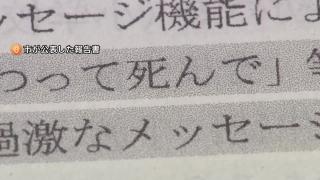 ッセージ機能によ
市が公表した報告書
つって死んで」等
過激なメッセージ